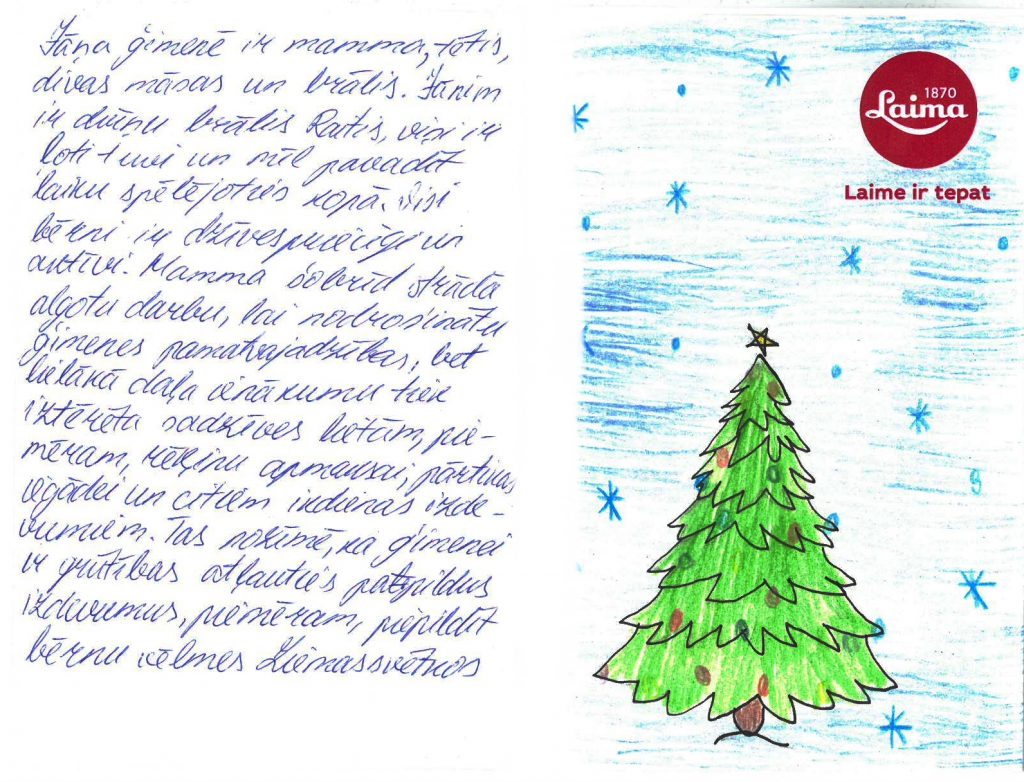 Jāņa ģimenē ir mamma, tētis,
divas māsas un brālis. Jānim
ir dvīņu brālis Raitis, viņi ir
ļoti tuvi un mīl pavadīt
laiku spēlējoties kopā. Visi
bērni ir dzīvespriecīgi un
aktīvi. Mamma šobrīd strādā
algotu darbu, lai nodrošinātu
ģimenes pamatvajadzības, bet
lielākā daļa ienākumu tiek
iztērēta sadzīves lietām, pie-
mēram, rēķinu apmaksai, pārtikas
iegādei un citiem ikdienas izde-
vumiem. Tas nozīmē, ka ģimenei
ir grūtības atļauties papildus
izdevumus, piemēram, piepildīt
bērnu vēlmes Ziemassvētkos
1870
Laima
Laime ir tepat